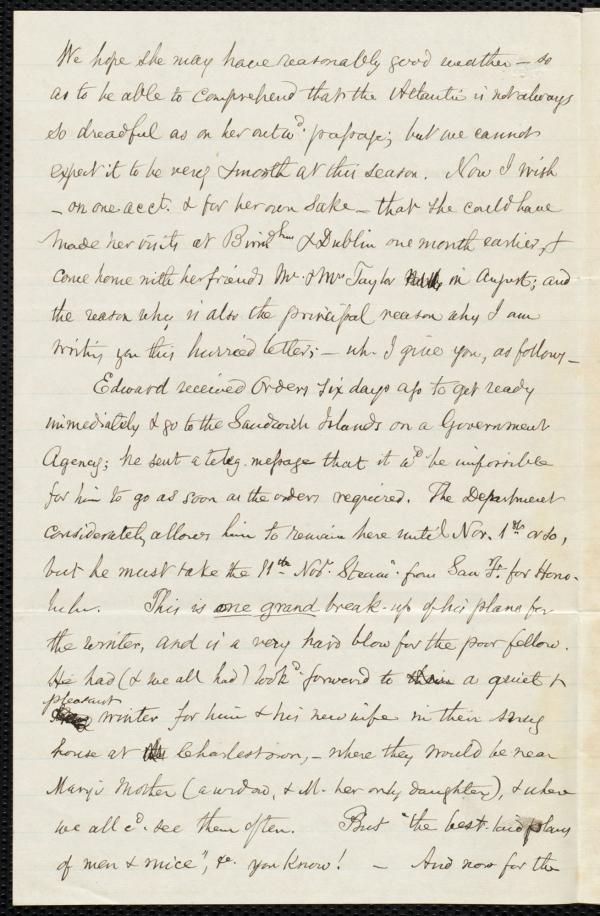 We hope she may have reasonably good weather – so
as to be able to comprehend that the Atlantic is not always
so dreadful as on her outwd. passage; but we cannot
expect it to be very smooth at this season. Now I wish
– on one acct. & for her own sake – that she could have
made her visits at Birmghm & Dublin one month earlier, &
come home with her friends Mr. & Mrs Taylor in August; and
the reason why, is also the principal reason why I am
writing you this hurried letter; – wh. I give you, as follows –
Edward received Orders six days ago to get ready
immediately & go to the Sandwich Islands on a Government
Agency; he sent a teleg. message that it wd. be impossible
for him to go as soon as the orders required. The Department
considerately allows him to remain here until Nov. 1st or so,
but he must take the 11th Novr. Steamr. from San Fr. for Hono-
lulu. This is one grand break-up of his plans for
the winter, and is a very hard blow for the poor fellow.
He had (& we all had) lookd. forward to a quiet &
pleasant winter for him & his new wife in their snug
house at Charlestown, – where they would be near
Mary's Mother (a widow, & M. her only daughter), & where
we all cd. see them often. But "the best-laid plans
of men & mice", &c. you know! – And now for the